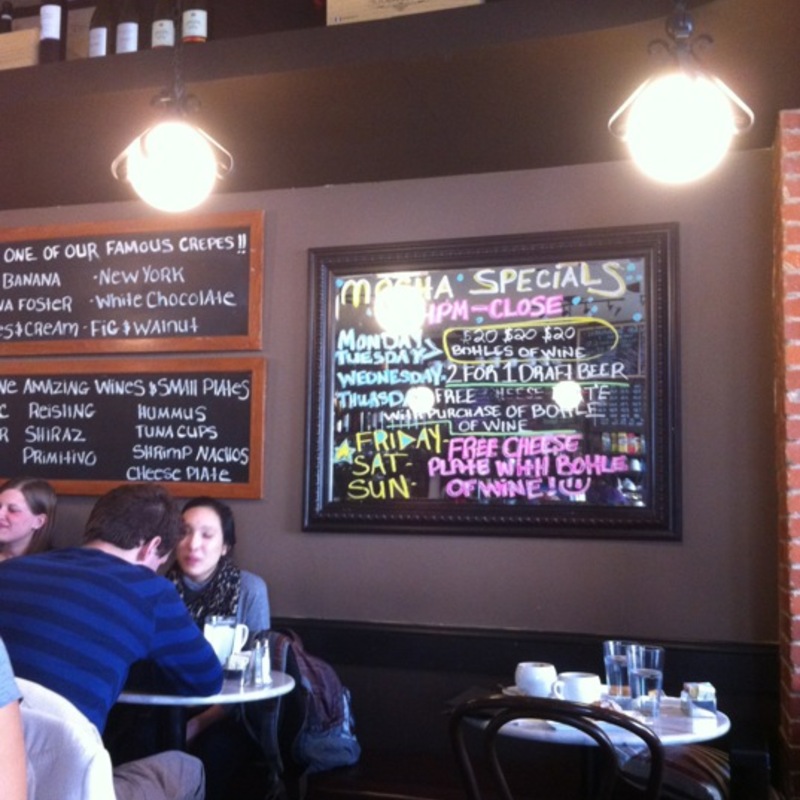 ONE OF OUR FAMOUS CREPES!!
BANANA · NEW YORK
FOSTER · White Chocolate
& CREAM · FIG & WALNUT
AMAZING WINES & SMALL PLATES
REISLING HUMMUS
SHIRAZ TUNA CUPS
PRIMITIVO SHRIMP NACHOS
CHEESE PLATE
MOCHA SPECIALS
4PM - CLOSE
MONDAY
TUESDAY > $20 $20 $20
BOTTLES OF WINE
WEDNESDAY· 2 FOR 1 DRAFT BEER
THURSDAY FREE CHEESE PLATE
WITH PURCHASE OF BOTTLE
OF WINE
FRIDAY- FREE CHEESE
SAT- PLATE WITH BOTTLE
SUN- OF WINE!